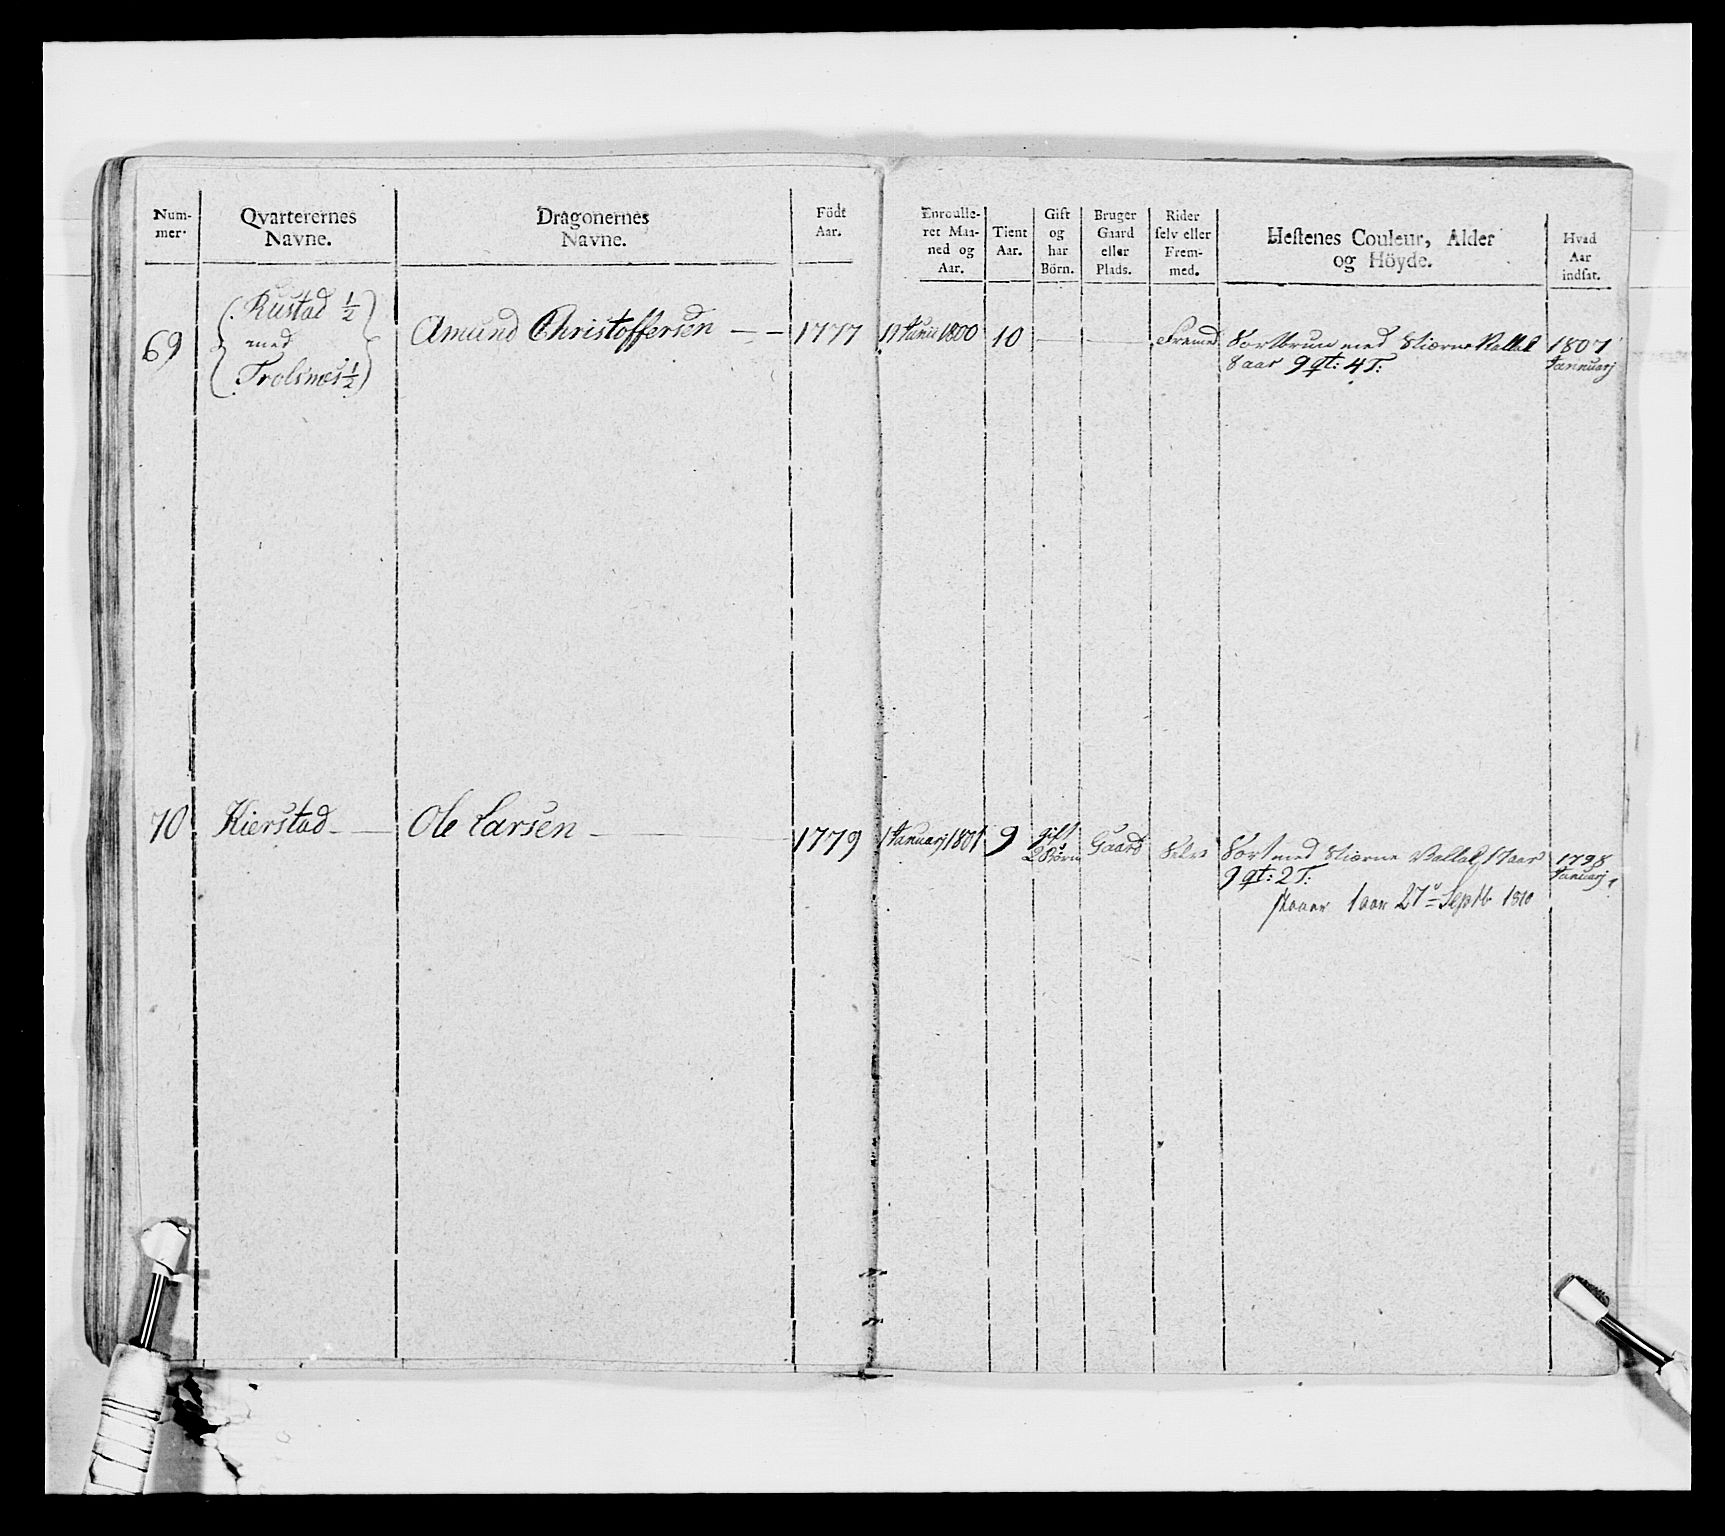 Num-
mer.
Qvarterernes
Navne.
Dragonernes
Navne.
Födt
Aar.
Enroulle-
ret Maa-
ned og
Aar.
Tient
Aar.
Gift
og
har
Börn.
Bruger
Gaard
eller
Plads.
Rider
selv eller
Frem-
med.
Hestenes Couleur, Alder
og Höyde.
Hvad
Aar
indsat.
69
Rustad 1/2
med
Trolsnæs 1/2
Amund Christoffersen
1777
Junii 1800
10
Fremed
Sortbrun med Stierne Vallak
8 aar 9 qt: 4 T:
1807
Januarj
70
Kierstad
Ole Larsen
1779
1 Januarj 1801
9
gift
2 Börn
Gaard
Selv
Sort med Stierne Vallak aar
9 qt: 2 T:
27 Septb 1810
1798
Januarj